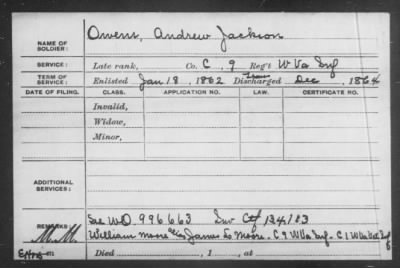 NAME OF SOLDIER: Owens, Andrew Jackson
SERVICE: Late rank, Co. C, 9 Reg't W Va Inf
TERM OF SERVICE: Enlisted Jan 18, 1862 Discharged Dec, 1864
DATE OF FILING. CLASS. APPLICATION NO. LAW. CERTIFICATE NO.
Invalid,
Widow,
Minor,
ADDITIONAL SERVICES:
See WO. 996663 Inv Ctf 134183
REMARKS: William Moore alias James L. Moore. C 9 W Va Inf. - C 1 W Va Vet Inf
Died , 1 , at